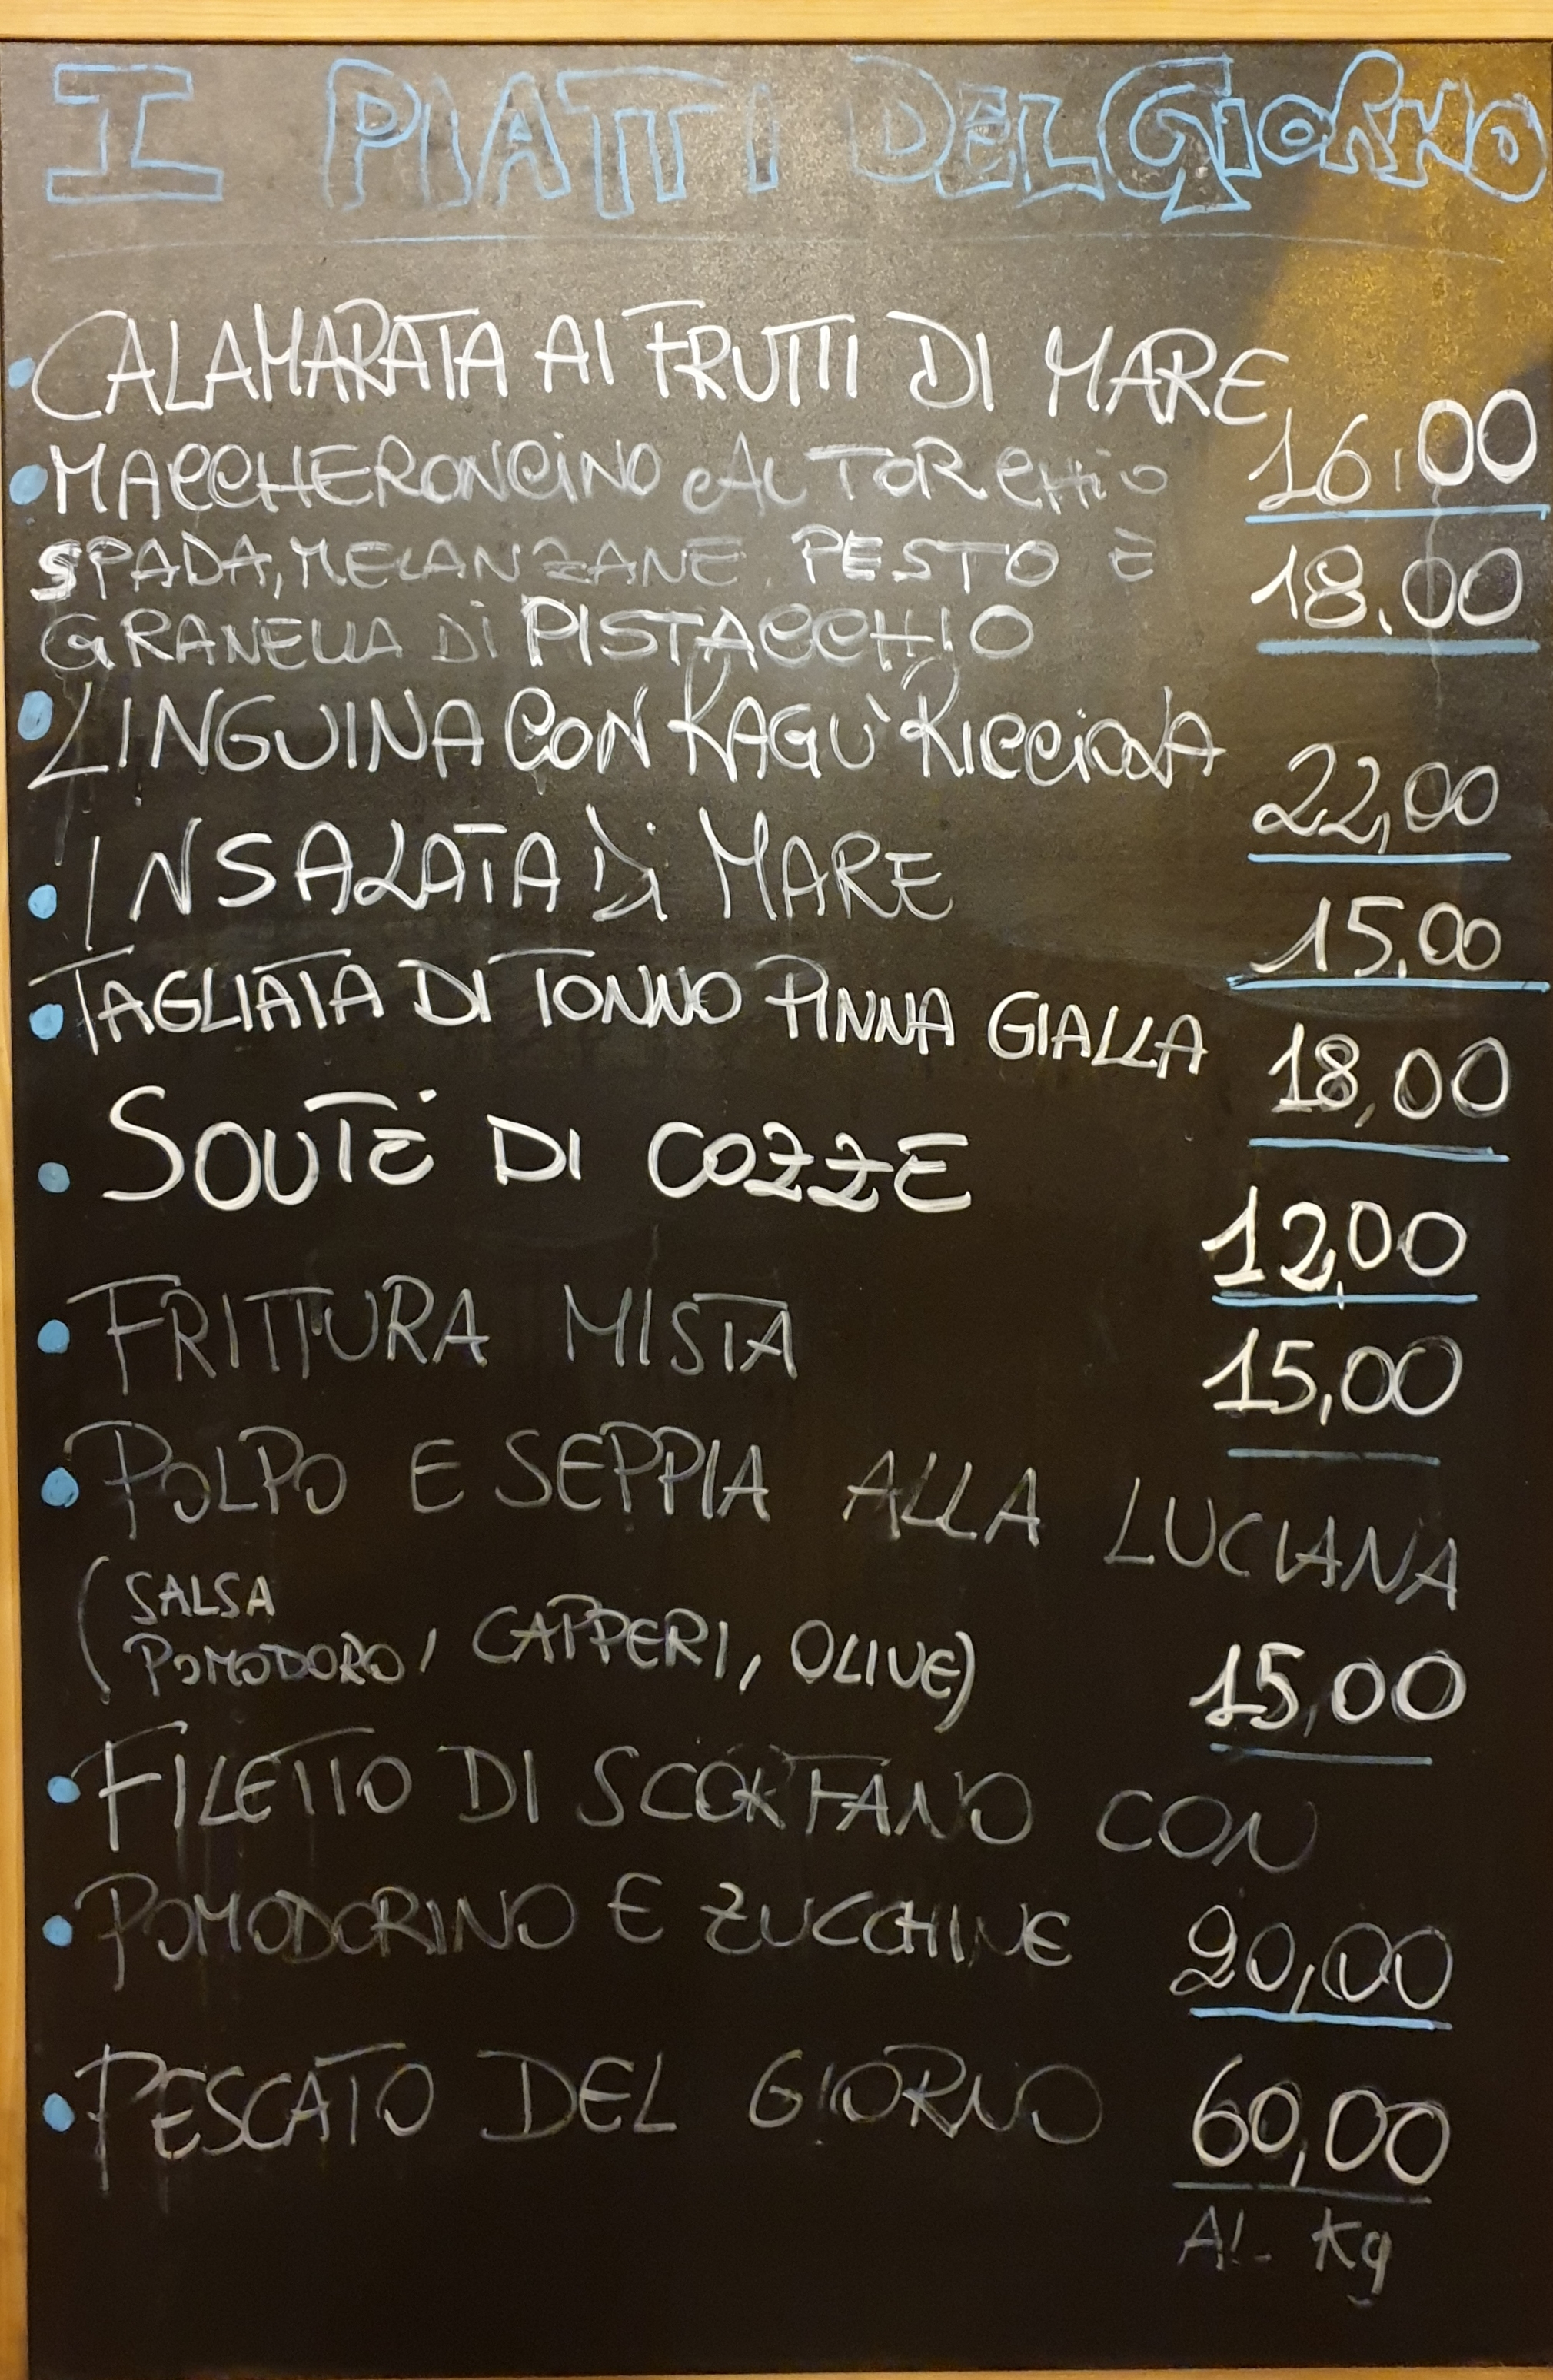 I PIATTI DEL GIORNO
• CALAMARATA AI FRUTTI DI MARE 16,00
• MACCHERONCINO AL TORCHIO
SPADA, MELANZANE, PESTO E 18,00
GRANELLA DI PISTACCHIO
• LINGUINA CON RAGU' RICCIOLA 22,00
• INSALATA Di MARE 15,00
• TAGLIATA DI TONNO PINNA GIALLA 18,00
• SOUTÉ DI COZZE 12,00
• FRITTURA MISTA 15,00
• POLPO E SEPPIA ALLA LUCIANA
(SALSA
POMODORO, CAPPERI, OLIVE) 15,00
• FILETTO DI SCORFANO CON
• POMODORINO E ZUCCHINE 20,00
• PESCATO DEL GIORNO 60,00
AL Kg